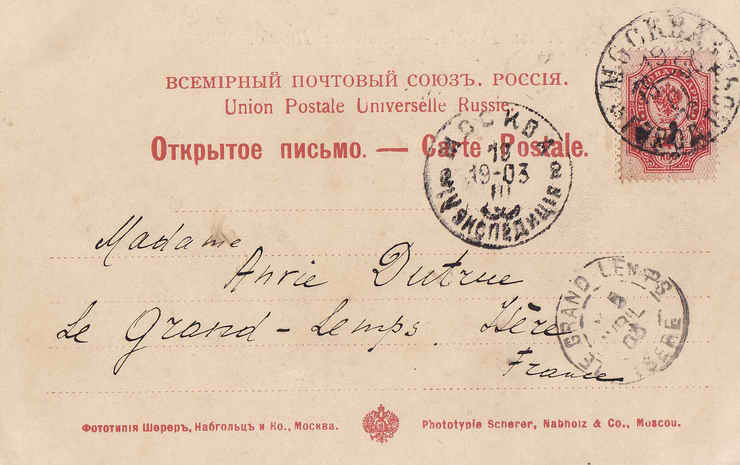 ВСЕМІРНЫЙ ПОЧТОВЫЙ СОЮЗЪ. РОССІЯ.
Union Postale Universelle Russie.
Открытое письмо. — Carte Postale.
МОСКВА
18
19-03
III
2 ЭКСПЕДИЦІЯ 2
МОСКВА
Madame
Anrie Dutrue
Le Grand-Lemps. Isère
France
LE GRAND LEMPS
5
AVRIL
03
ISÈRE
Фототипія Шереръ, Набгольцъ и Ко., Москва.
Phototypie Scherer, Nabholz & Co., Moscou.